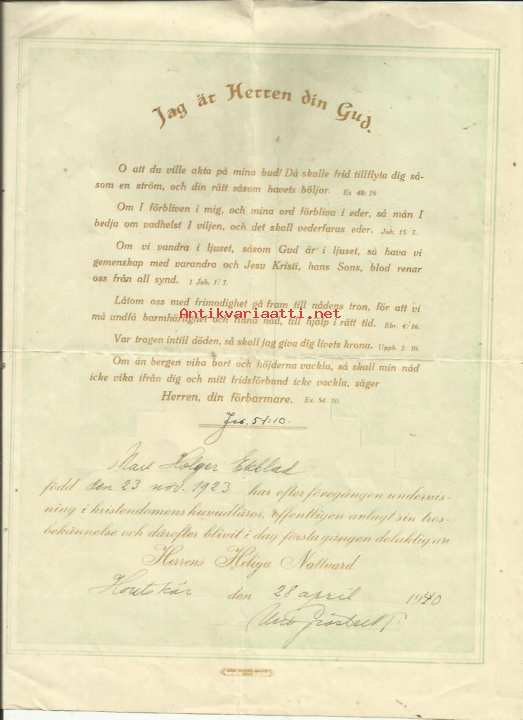 Jag är Herren din Gud.
O att du ville akta på mina bud! Då skulle frid tillflyta dig så-
som en ström, och din rätt såsom havets böljor. Es. 48: 18.
Om I förbliven i mig, och mina ord förbliva i eder, så mån I
bedja om vadhelst I viljen, och det skall vederfaras eder. Joh. 15: 7.
Om vi vandra i ljuset, såsom Gud är i ljuset, så hava vi
gemenskap med varandra och Jesu Kristi, hans Sons, blod renar
oss från all synd. 1 Joh. 1: 7.
Låtom oss med frimodighet gå fram till nådens tron, för att vi
Antikvariaatti.net
må undfå barmhärtighet och finna nåd, till hjälp i rätt tid. Ebr. 4: 16.
Var trogen intill döden, så skall jag giva dig livets krona. Upph. 2: 10.
Om än bergen vika bort och höjderna vackla, så skall min nåd
icke vika ifrån dig och mitt fridsförbund icke vackla, säger
Herren, din förbarmare. Es. 54: 10.
Jes. 54:10.
Holger Ekblad
född den 23 nov. 1923 har efter föregången undervis-
ning i kristendomens huvudläror, offentligen avlagt sin tros-
bekännelse och därefter blivit i dag första gången delaktig av
Herrens Heliga Nattvard
den 28 april 1940